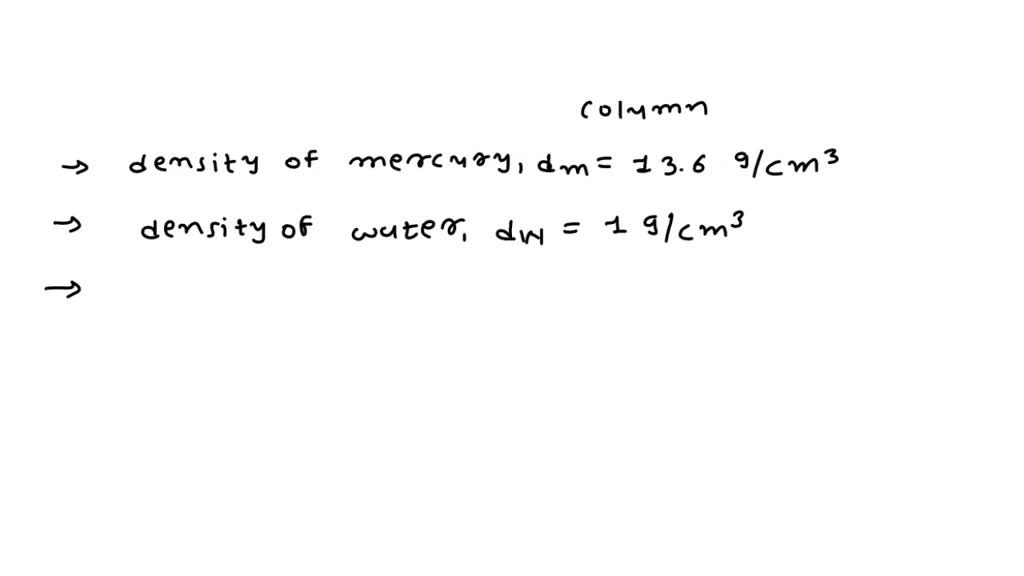 column
→ density of mercury, dm = 13.6 g/cm³
→ density of water, dw = 1 g/cm³
→